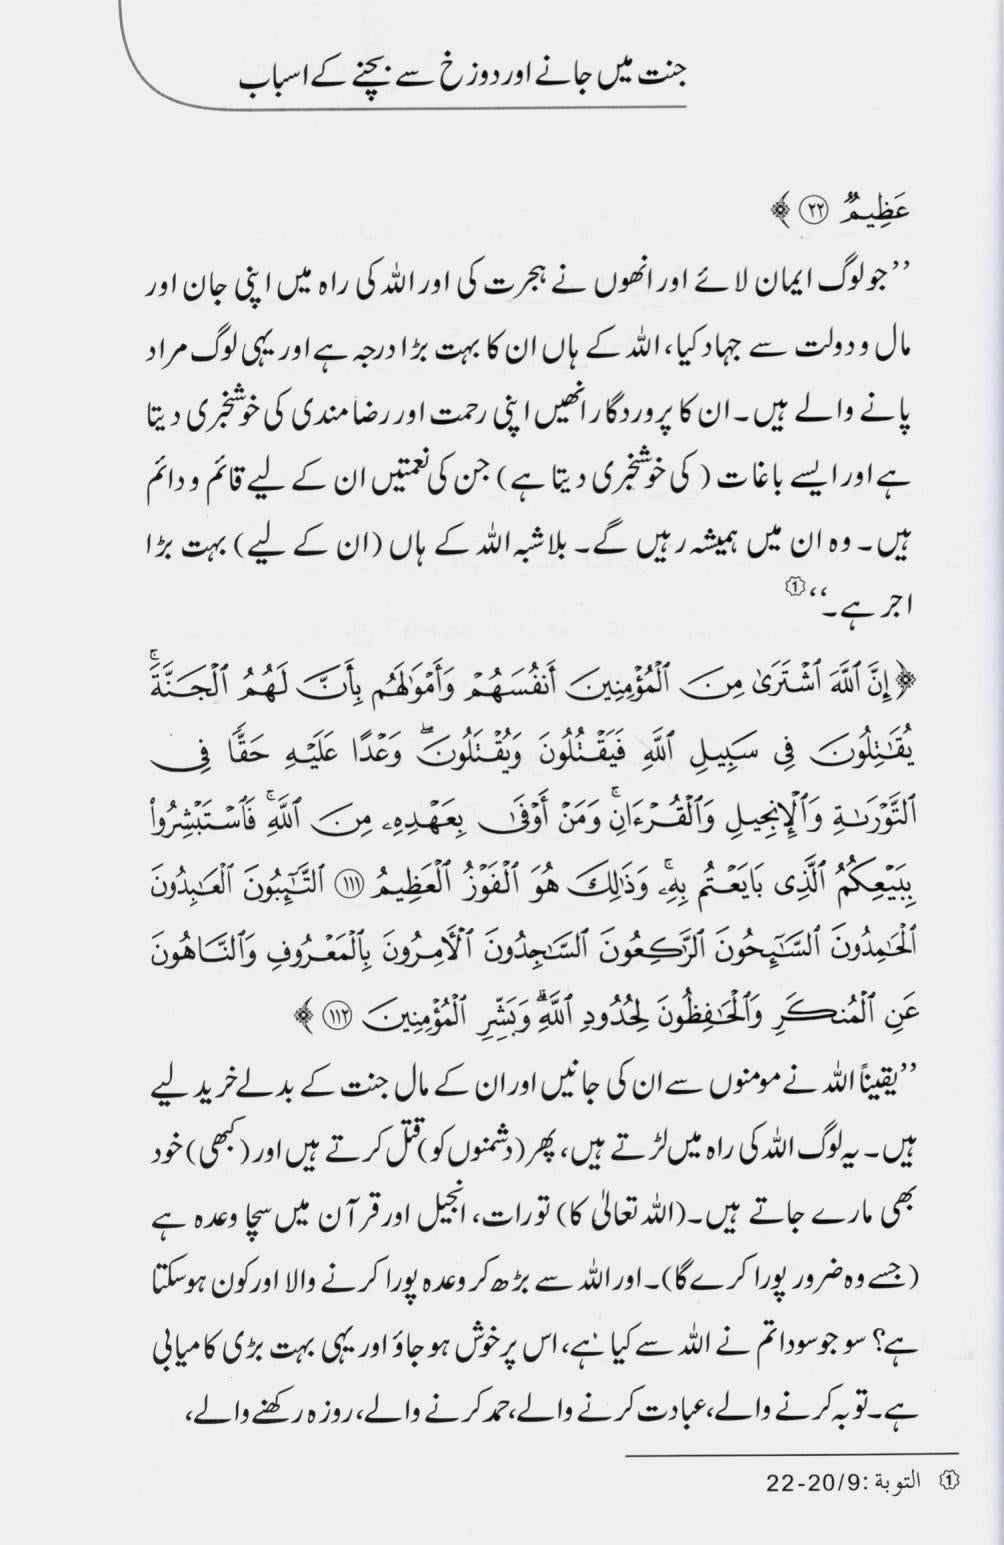 جنت میں جانے اور دوزخ سے بچنے کے اسباب
عَظِيمٌ ﴿٢٢﴾ ﴾
’’جو لوگ ایمان لائے اور انھوں نے ہجرت کی اور اللہ کی راہ میں اپنی جان اور
مال و دولت سے جہاد کیا، اللہ کے ہاں ان کا بہت بڑا درجہ ہے اور یہی لوگ مراد
پانے والے ہیں۔ ان کا پروردگار انھیں اپنی رحمت اور رضا مندی کی خوشخبری دیتا
ہے اور ایسے باغات (کی خوشخبری دیتا ہے) جن کی نعمتیں ان کے لیے قائم و دائم
ہیں۔ وہ ان میں ہمیشہ رہیں گے۔ بلاشبہ اللہ کے ہاں (ان کے لیے) بہت بڑا
اجر ہے۔‘‘ ①
﴿ إِنَّ ٱللَّهَ ٱشْتَرَىٰ مِنَ ٱلْمُؤْمِنِينَ أَنفُسَهُمْ وَأَمْوَٰلَهُم بِأَنَّ لَهُمُ ٱلْجَنَّةَ ۚ
يُقَٰتِلُونَ فِى سَبِيلِ ٱللَّهِ فَيَقْتُلُونَ وَيُقْتَلُونَ ۖ وَعْدًا عَلَيْهِ حَقًّا فِى
ٱلتَّوْرَىٰةِ وَٱلْإِنجِيلِ وَٱلْقُرْءَانِ ۚ وَمَنْ أَوْفَىٰ بِعَهْدِهِۦ مِنَ ٱللَّهِ ۚ فَٱسْتَبْشِرُوا۟
بِبَيْعِكُمُ ٱلَّذِى بَايَعْتُم بِهِۦ ۚ وَذَٰلِكَ هُوَ ٱلْفَوْزُ ٱلْعَظِيمُ ﴿١١١﴾ ٱلتَّٰٓئِبُونَ ٱلْعَٰبِدُونَ
ٱلْحَٰمِدُونَ ٱلسَّٰٓئِحُونَ ٱلرَّٰكِعُونَ ٱلسَّٰجِدُونَ ٱلْءَامِرُونَ بِٱلْمَعْرُوفِ وَٱلنَّاهُونَ
عَنِ ٱلْمُنكَرِ وَٱلْحَٰفِظُونَ لِحُدُودِ ٱللَّهِ ۗ وَبَشِّرِ ٱلْمُؤْمِنِينَ ﴿١١٢﴾ ﴾
’’یقیناً اللہ نے مومنوں سے ان کی جانیں اور ان کے مال جنت کے بدلے خرید لیے
ہیں۔ یہ لوگ اللہ کی راہ میں لڑتے ہیں، پھر (دشمنوں کو) قتل کرتے ہیں اور (کبھی) خود
بھی مارے جاتے ہیں۔ (اللہ تعالیٰ کا) تورات، انجیل اور قرآن میں سچا وعدہ ہے
(جسے وہ ضرور پورا کرے گا)۔ اور اللہ سے بڑھ کر وعدہ پورا کرنے والا اور کون ہو سکتا
ہے؟ سو جو سودا تم نے اللہ سے کیا ہے، اس پر خوش ہو جاؤ اور یہی بہت بڑی کامیابی
ہے۔ توبہ کرنے والے، عبادت کرنے والے، حمد کرنے والے، روزہ رکھنے والے،
① التوبة :9/20-22